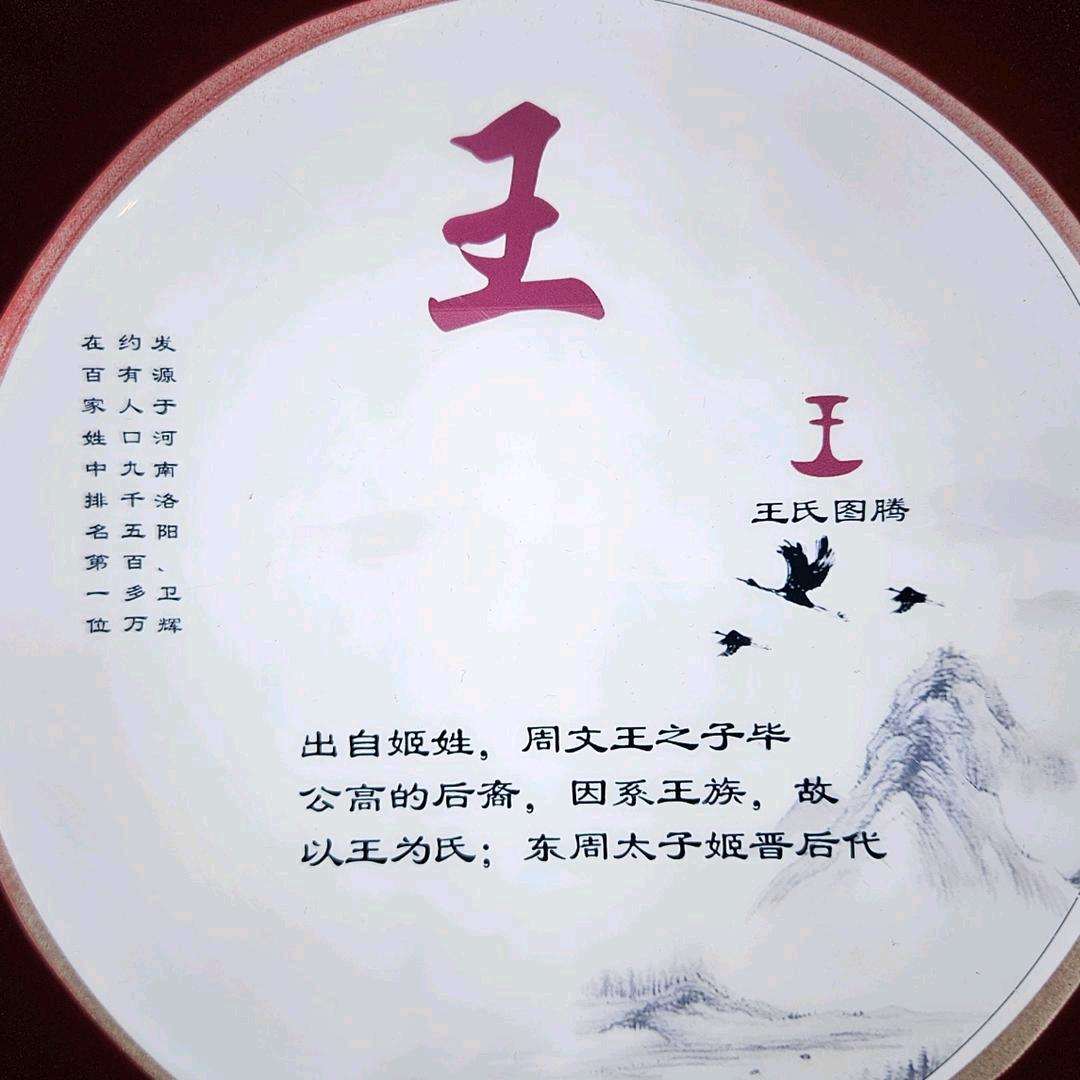 王
发源于河南洛阳、卫辉
约有人口九千五百多万
在百家姓中排名第一位
王
王氏图腾
出自姬姓，周文王之子毕
公高的后裔，因系王族，故
以王为氏；东周太子姬晋后代